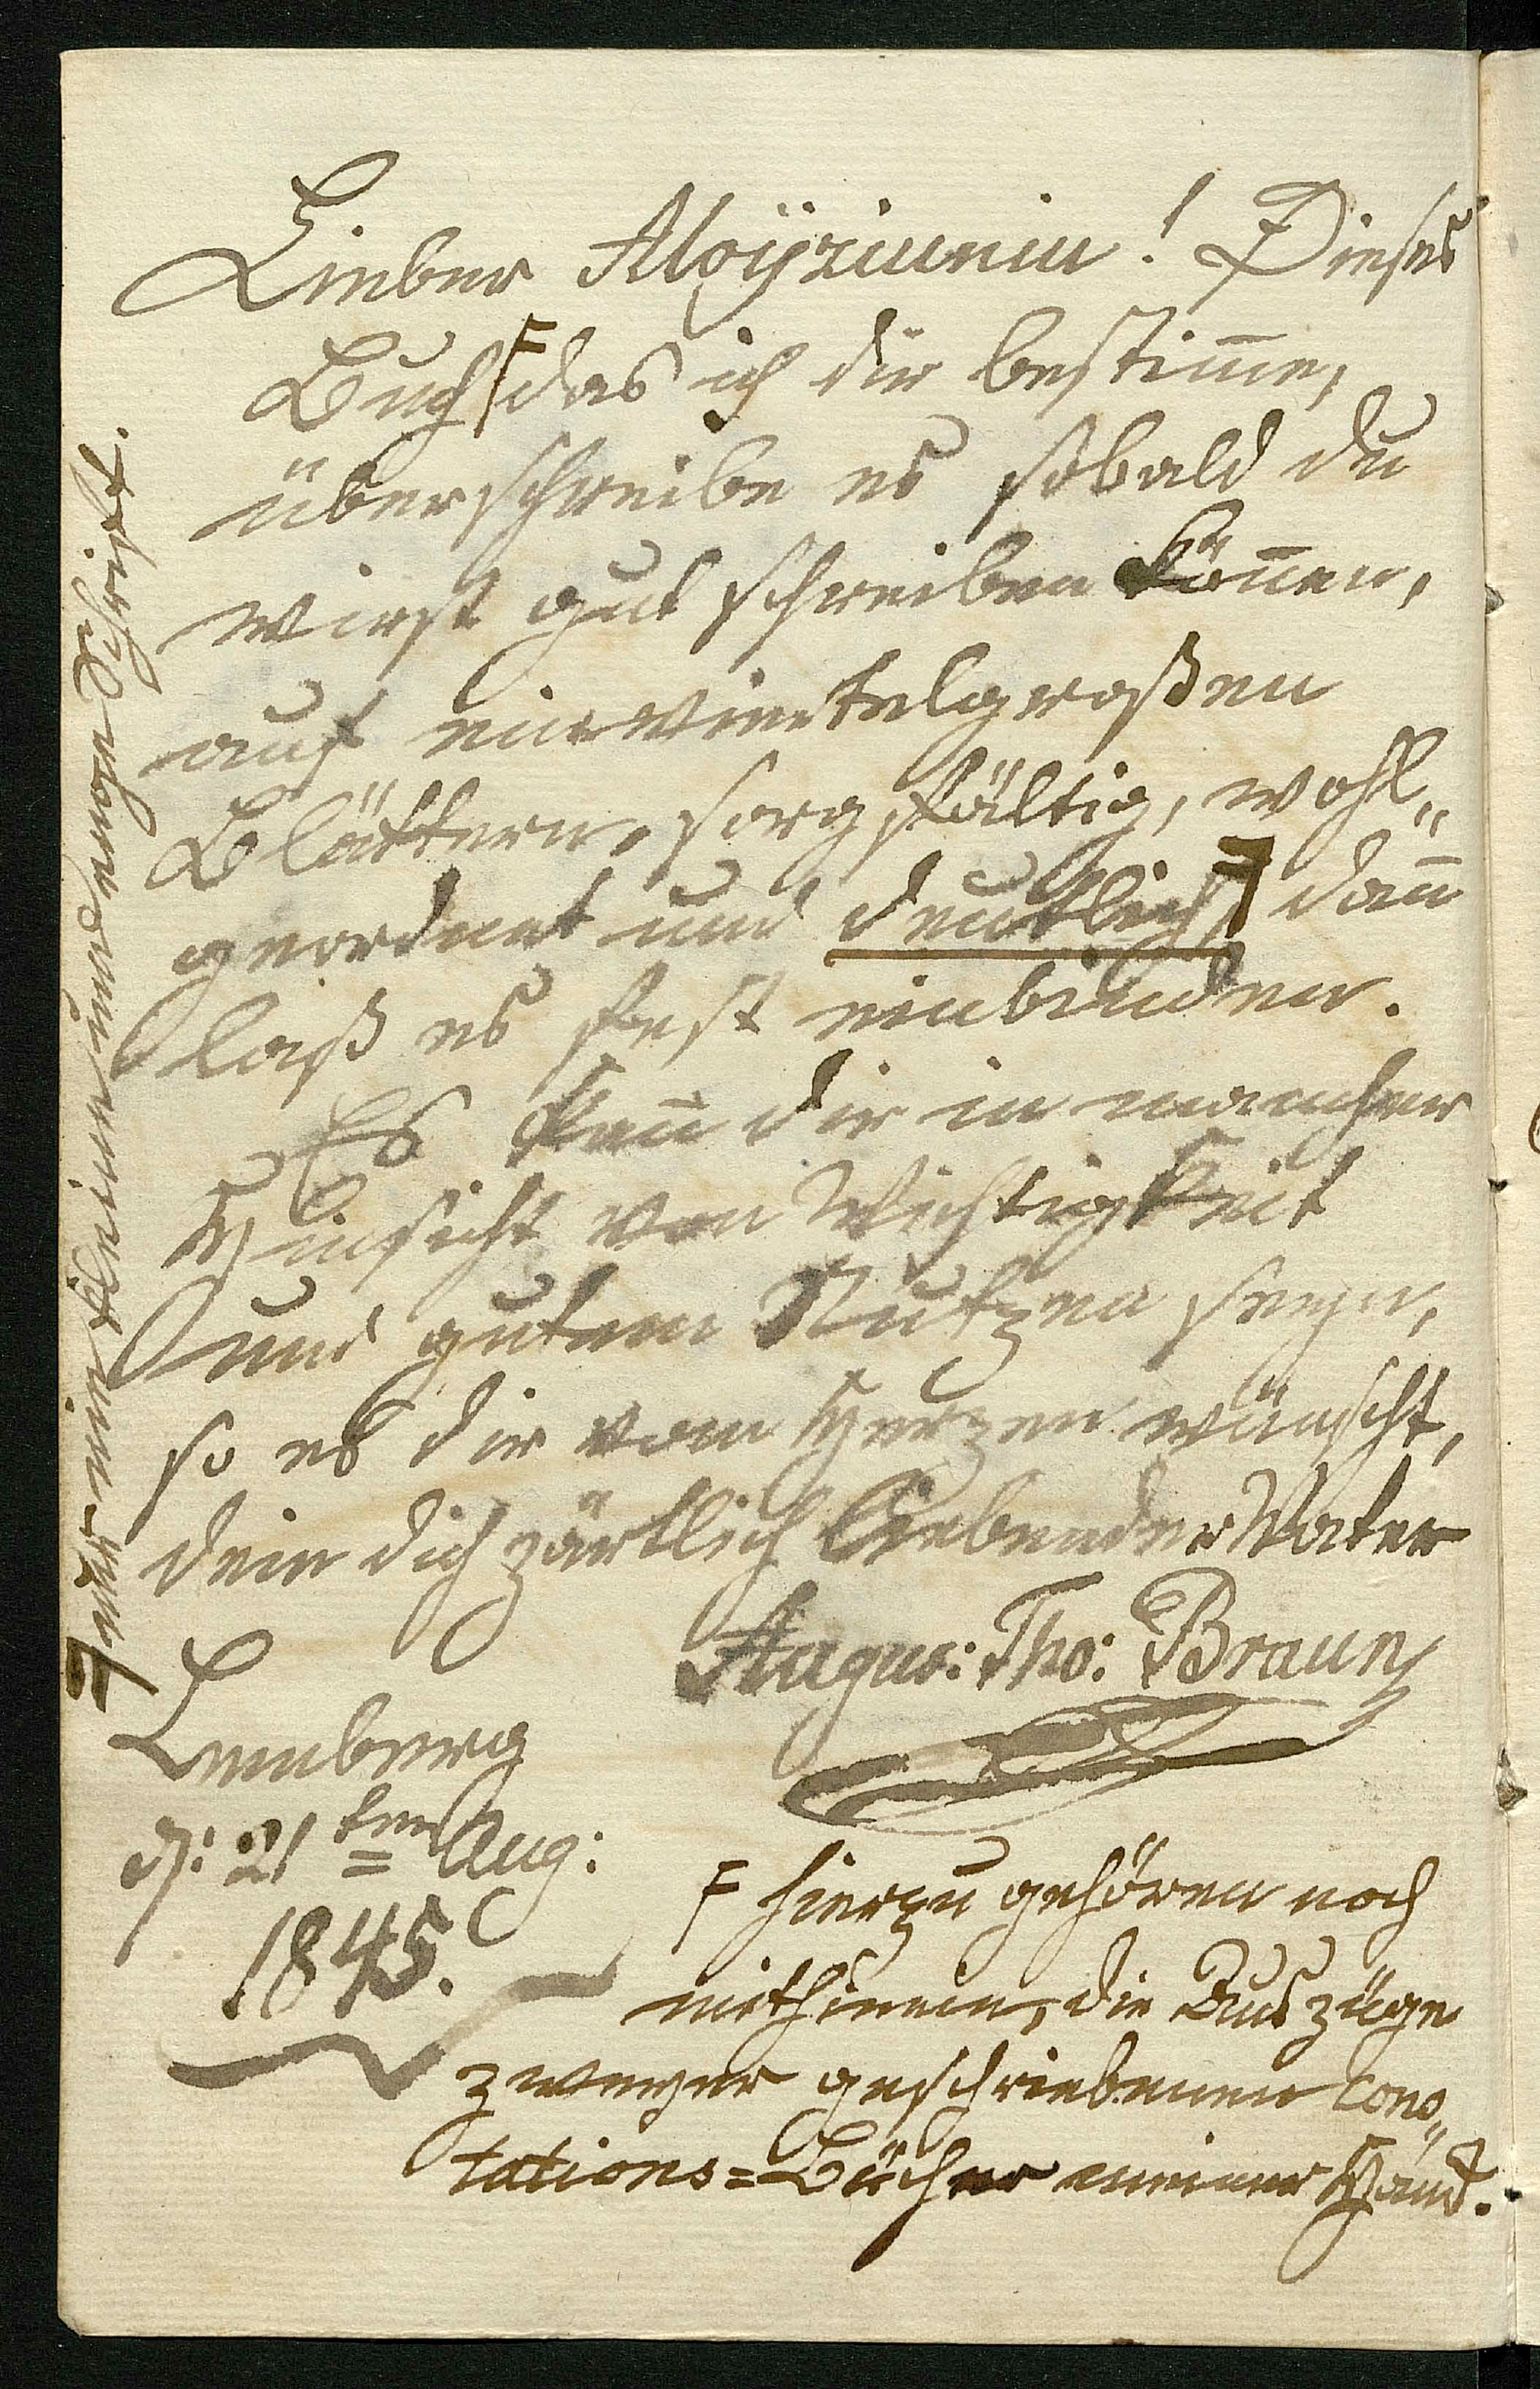 Lieber Aloÿziuniu! Dieses
Buch F das ich dir bestim̅e,
überschreibe es sobald du
wirst gut schreiben kön̅en,
auf einviertelgroßen
Blättern, sorgfältig, wohl„
geordnet und deutlich, dan̅
laß es fest einbinden.
Es kan̅ dir in mancher
Hinsicht von Wichtigkeit
und gutem Nutzen seyn,
so es dir vom Herzen wünscht,
dein dich zärtlich liebender Vater
Augus: Tho: Braun
Lemberg
d: 21ten Aug:
1845.
F hierzu gehören noch
mithinein, die Auszüge
zweyer geschriebenen Cono„
tations=Bücher meiner Hand.
nur mit kleiner und enger Schrift.